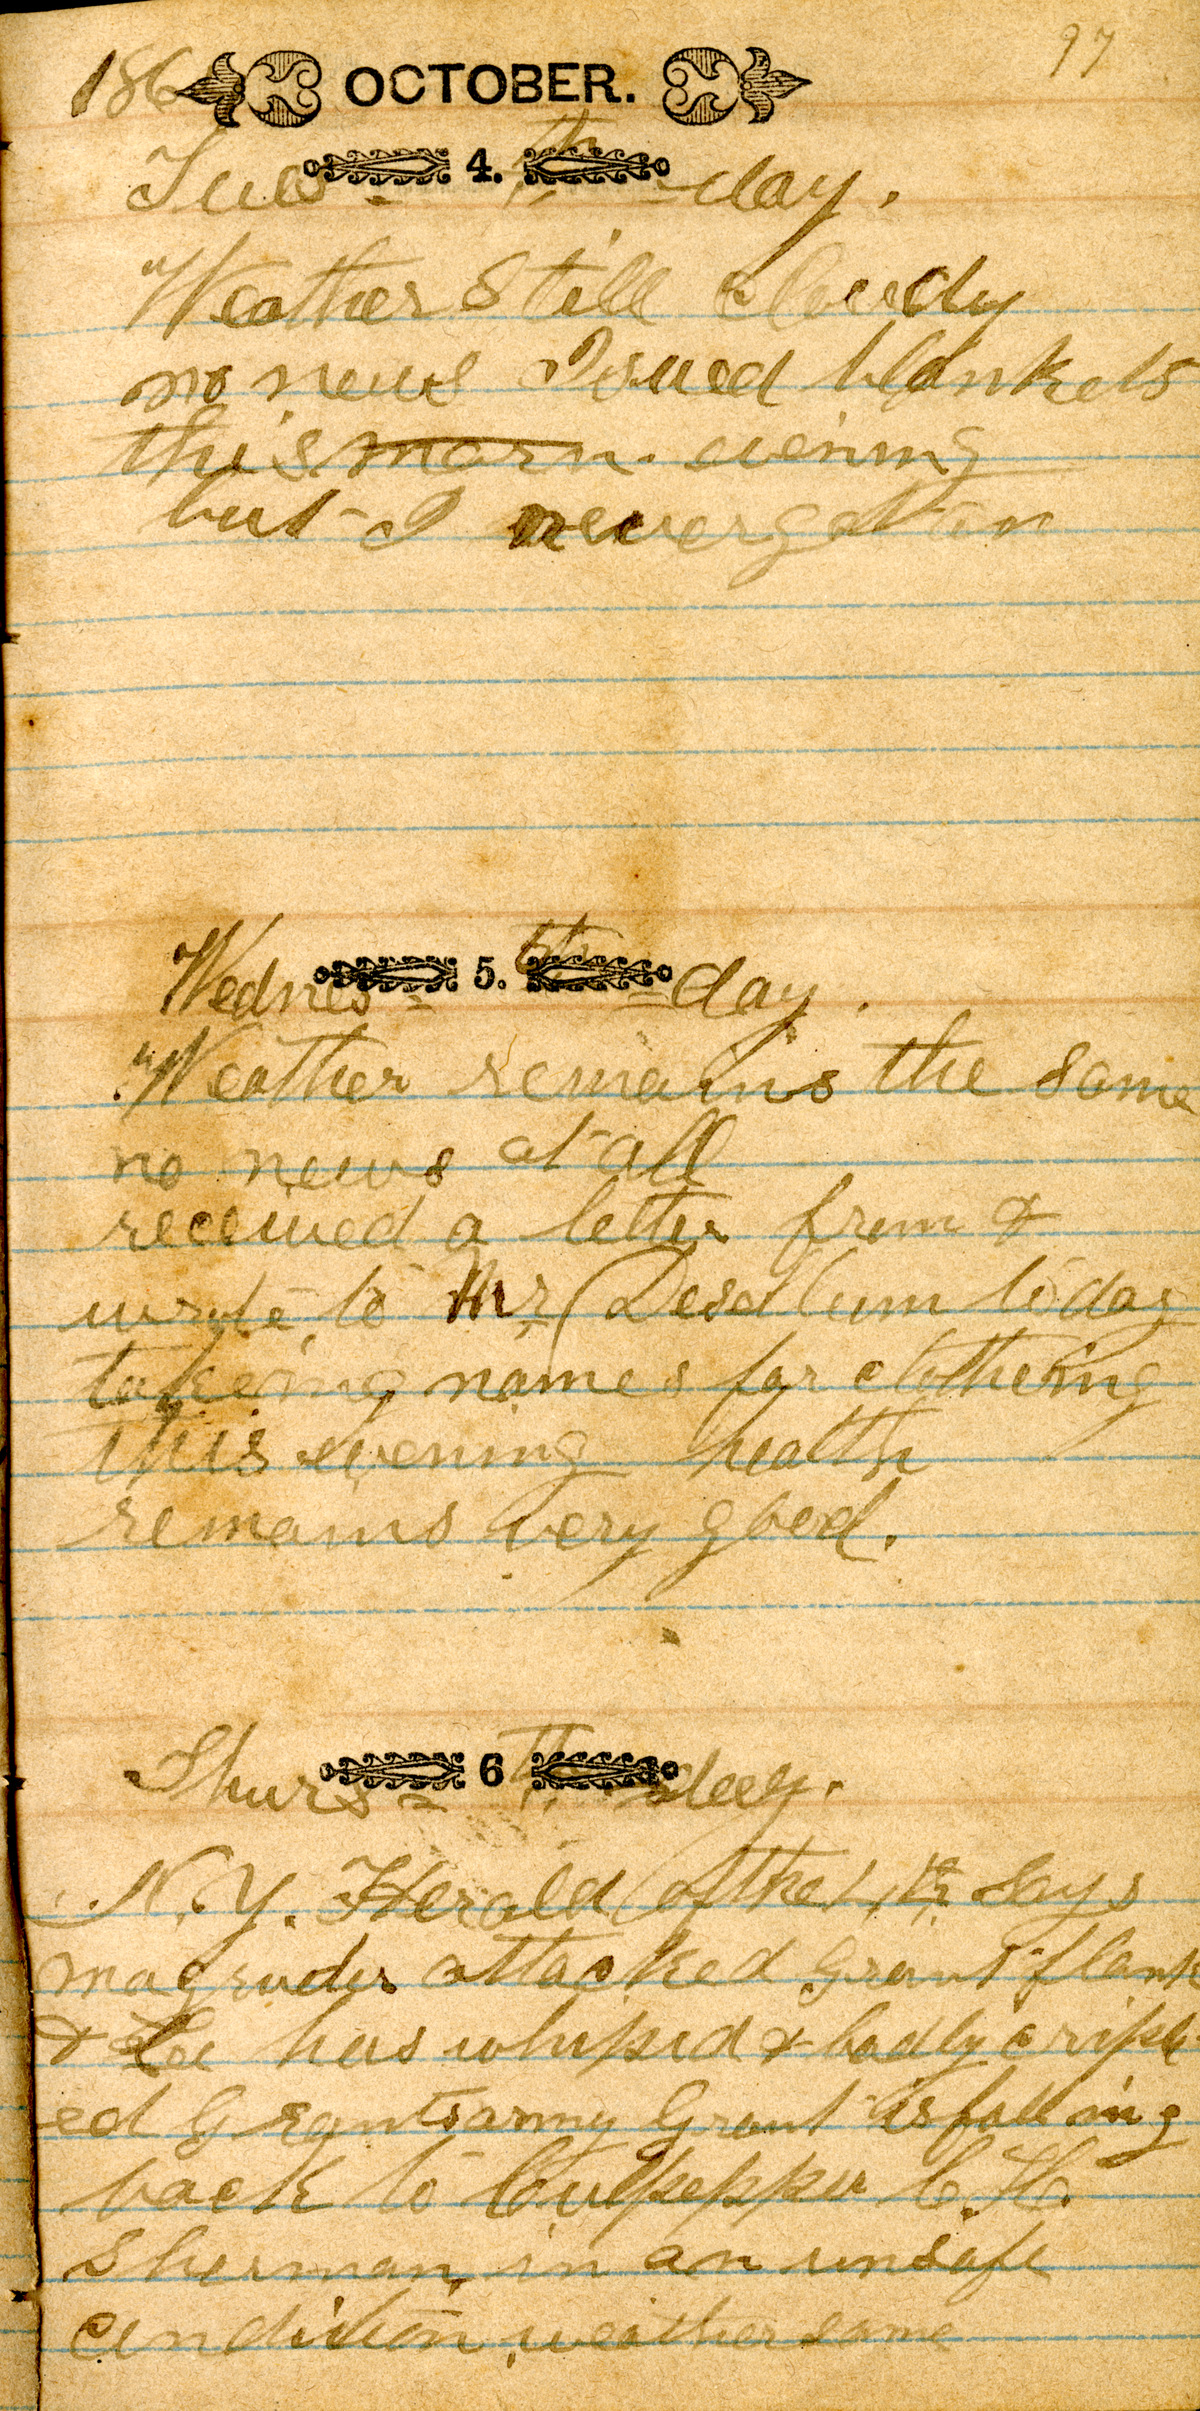 186 OCTOBER. 97
Tues- 4. th -day.
"Weather Still cloudy
no news Issued blankets
this morn. evening
but I never got on
Wednes- 5. 5th -day.
"Weather remains the same
no news at all
received a letter from &
wrote to Mr. Desellum today
takeing names for clotheing
this evening health
remains very good.
Thurs- 6 th day.
N.Y. Herald of the 1st says
magruder attacked Grant flank
& Lee has whiped & badly cripl
ed Grants army Grant is falling
back to Culpepper C.H.
Sherman in an unsafe
condition, weather same